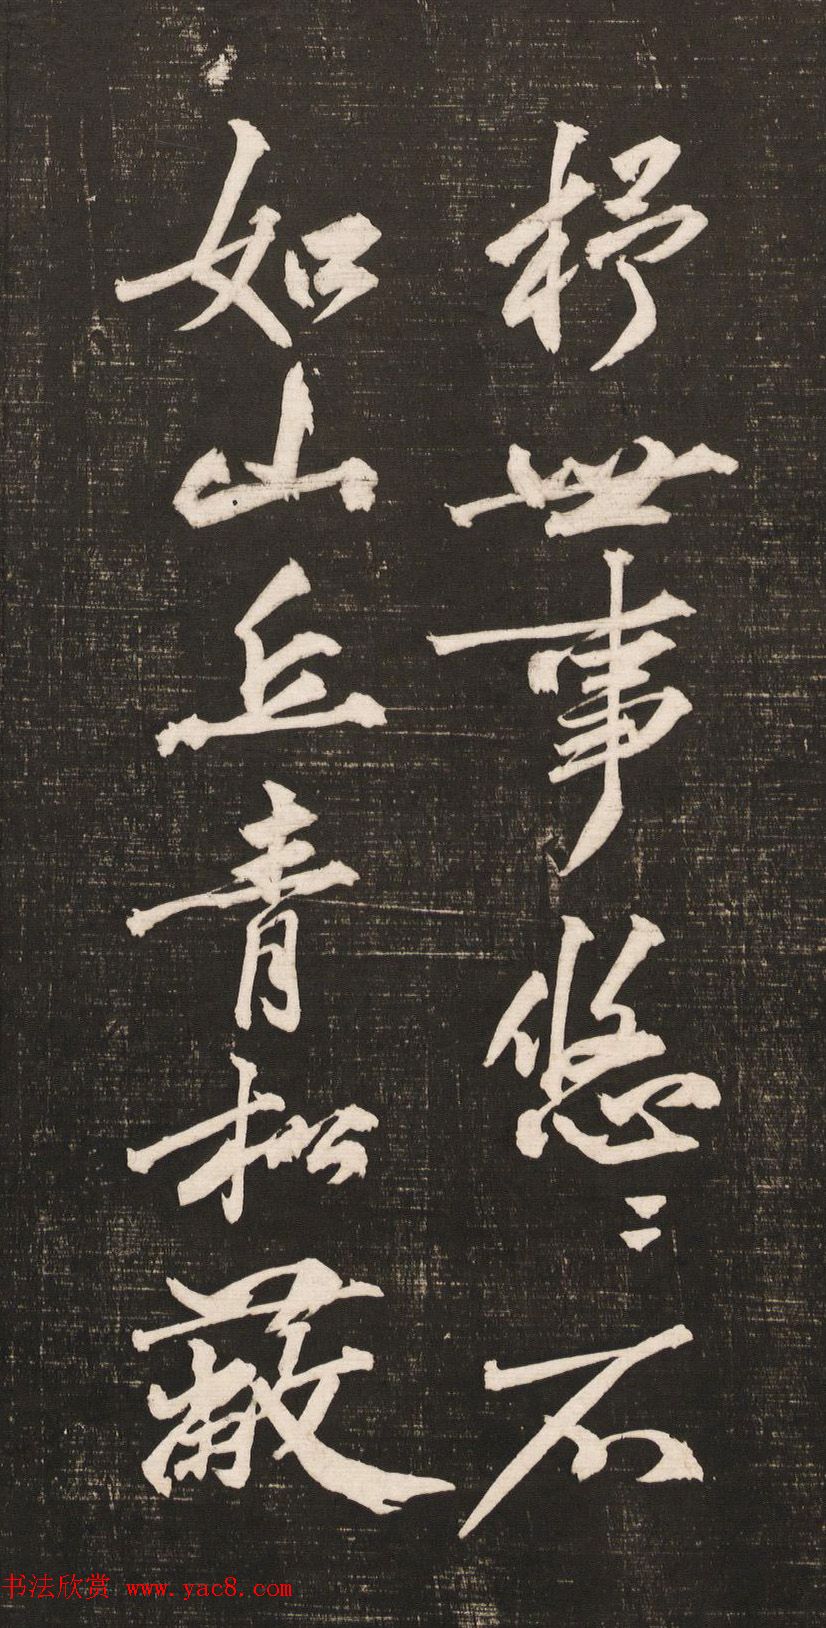 杼世事悠〻不
如山丘青松蔽
书法欣赏 www.yac8.com